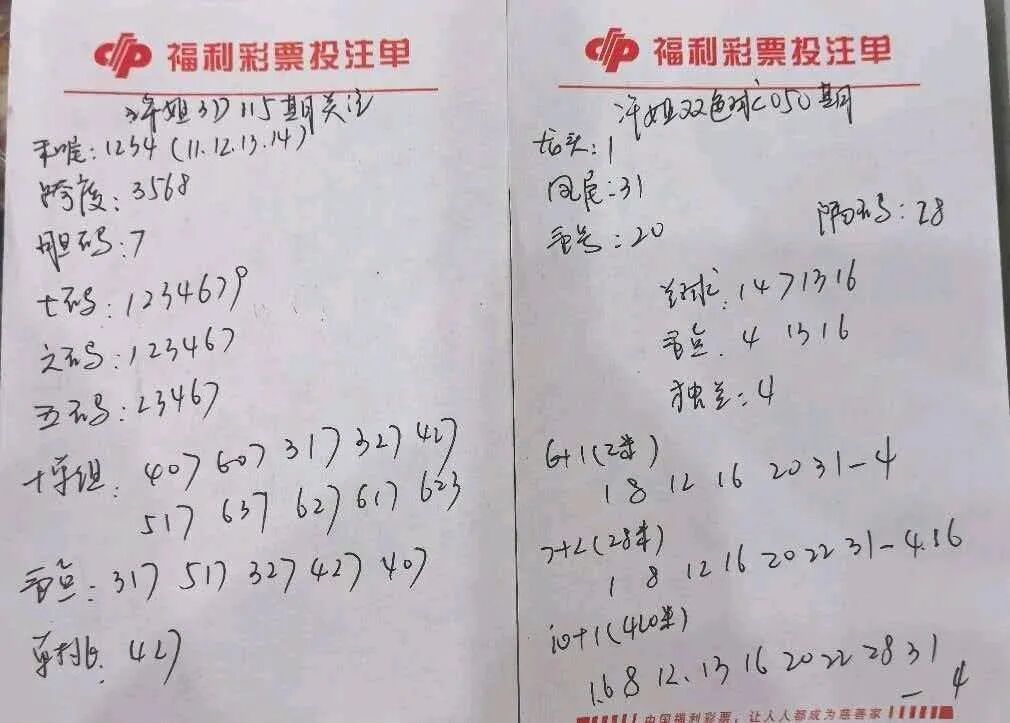 福利彩票投注单
许姐3D 115期关注
和尾:1234(11.12.13.14)
跨度:3568
胆码:7
七码:1234679
六码:123467
五码:23467
十单组:407 607 317 327 427
517 637 627 617 623
重点:317 517 327 427 407
单挑:427
福利彩票投注单
许姐双色球050期
龙头:1
凤尾:31
重号:20 隔码:28
兰球:1471316
重点:4 1316
独兰:4
6+1(2米)
1 8 12 16 20 31-4
7+2(28米)
1 8 12 16 20 22 31-4.16
10+1(420米)
1.6 8 12.13 16 20 22 28 31
-4
中国福利彩票,让人人都成为慈善家